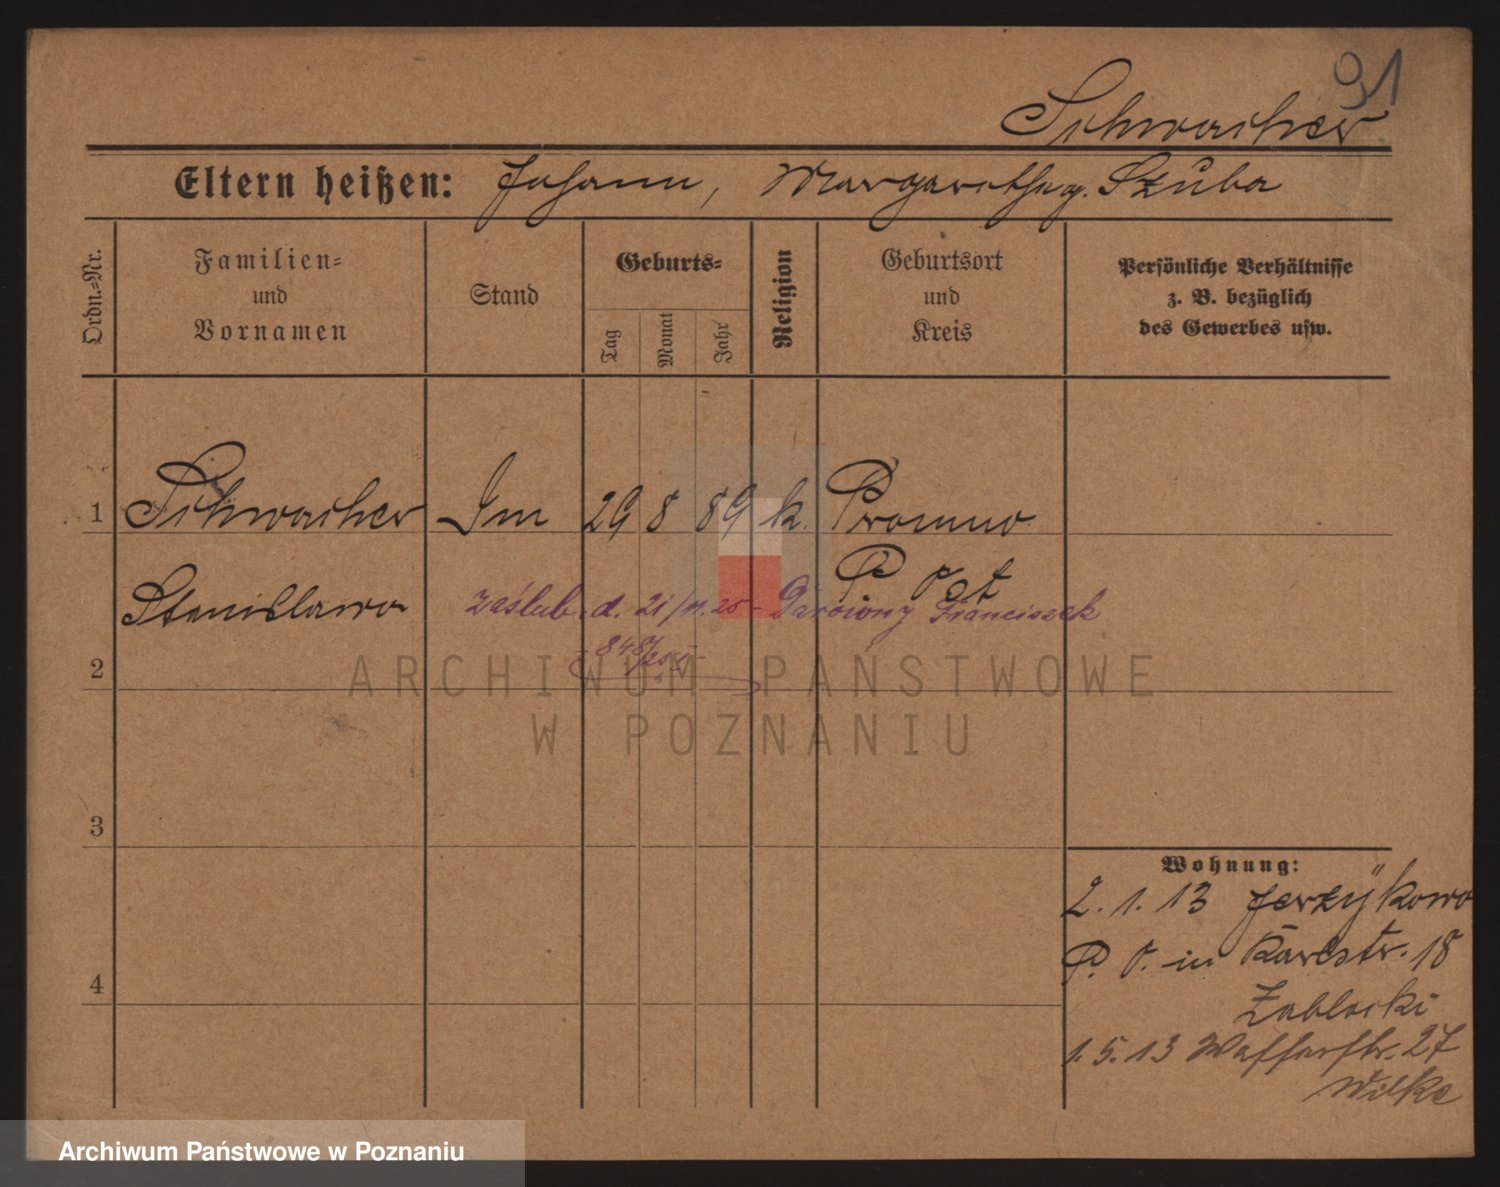 91
Schwacher
Eltern heißen: Johann, Margarethe g. Szuba
Ordn.-Nr.
Familien-
und
Vornamen
Stand
Geburts-
Tag
Monat
Jahr
Religion
Geburtsort
und
Kreis
Persönliche Verhältnisse
z. B. bezüglich
des Gewerbes usw.
1 Schwacher Im 29 8 89 k. Promno
P Ost
Stanislawa zaślub. d. 21/11.20 - Franciszek
848/20
2
3
4
Wohnung:
2.1.13 Jerzÿkowo
P. O. in Karlstr. 18
Zablocki
1.5.13 Wasserstr. 27
Wilke
ARCHIWUM PAŃSTWOWE
W POZNANIU
Archiwum Państwowe w Poznaniu